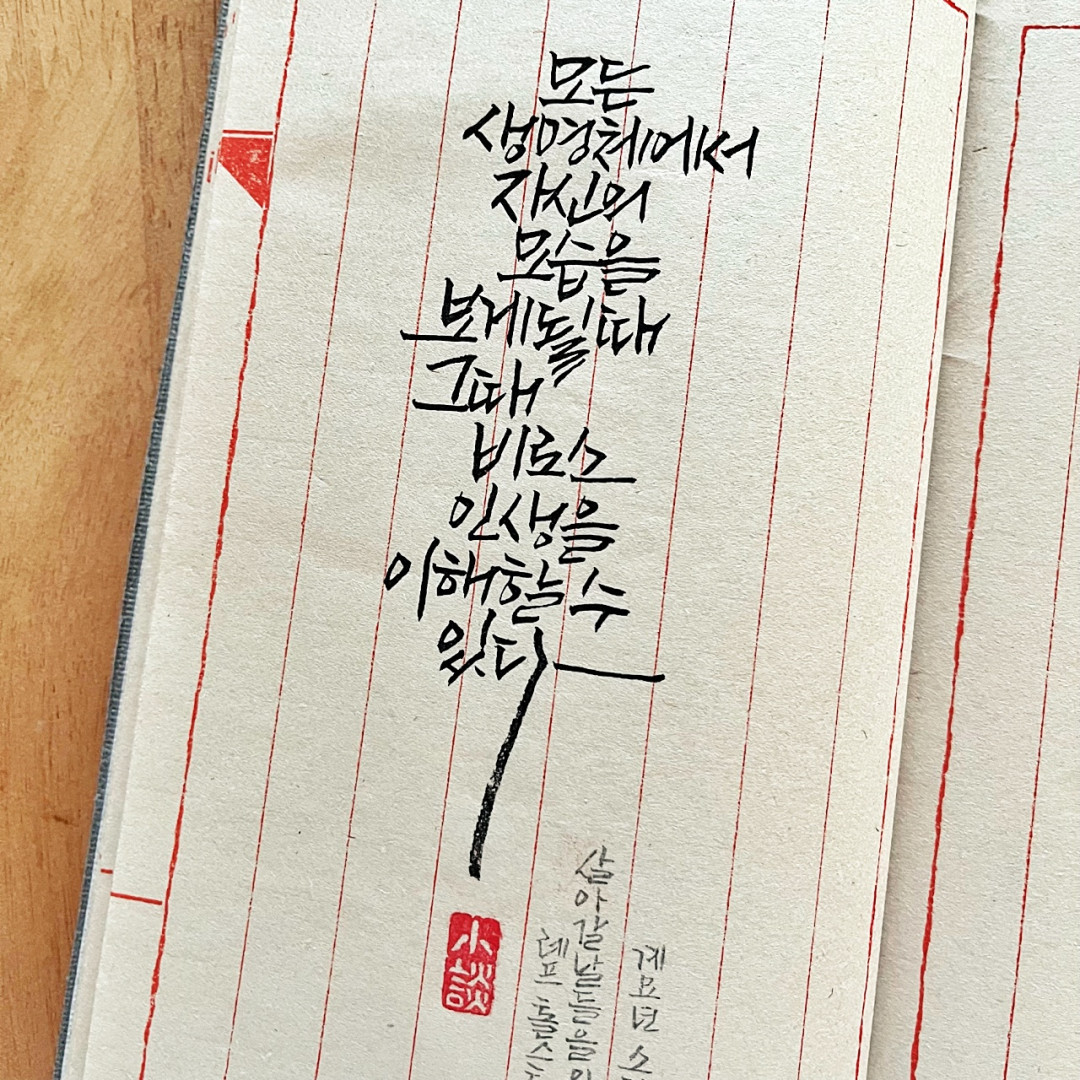 모든
생명체에서
자신의
모습을
보게될때
그때
비로소
인생을
이해할 수
있다
小談
계묘년 소
살아갈 날들을 위
레프 톨스